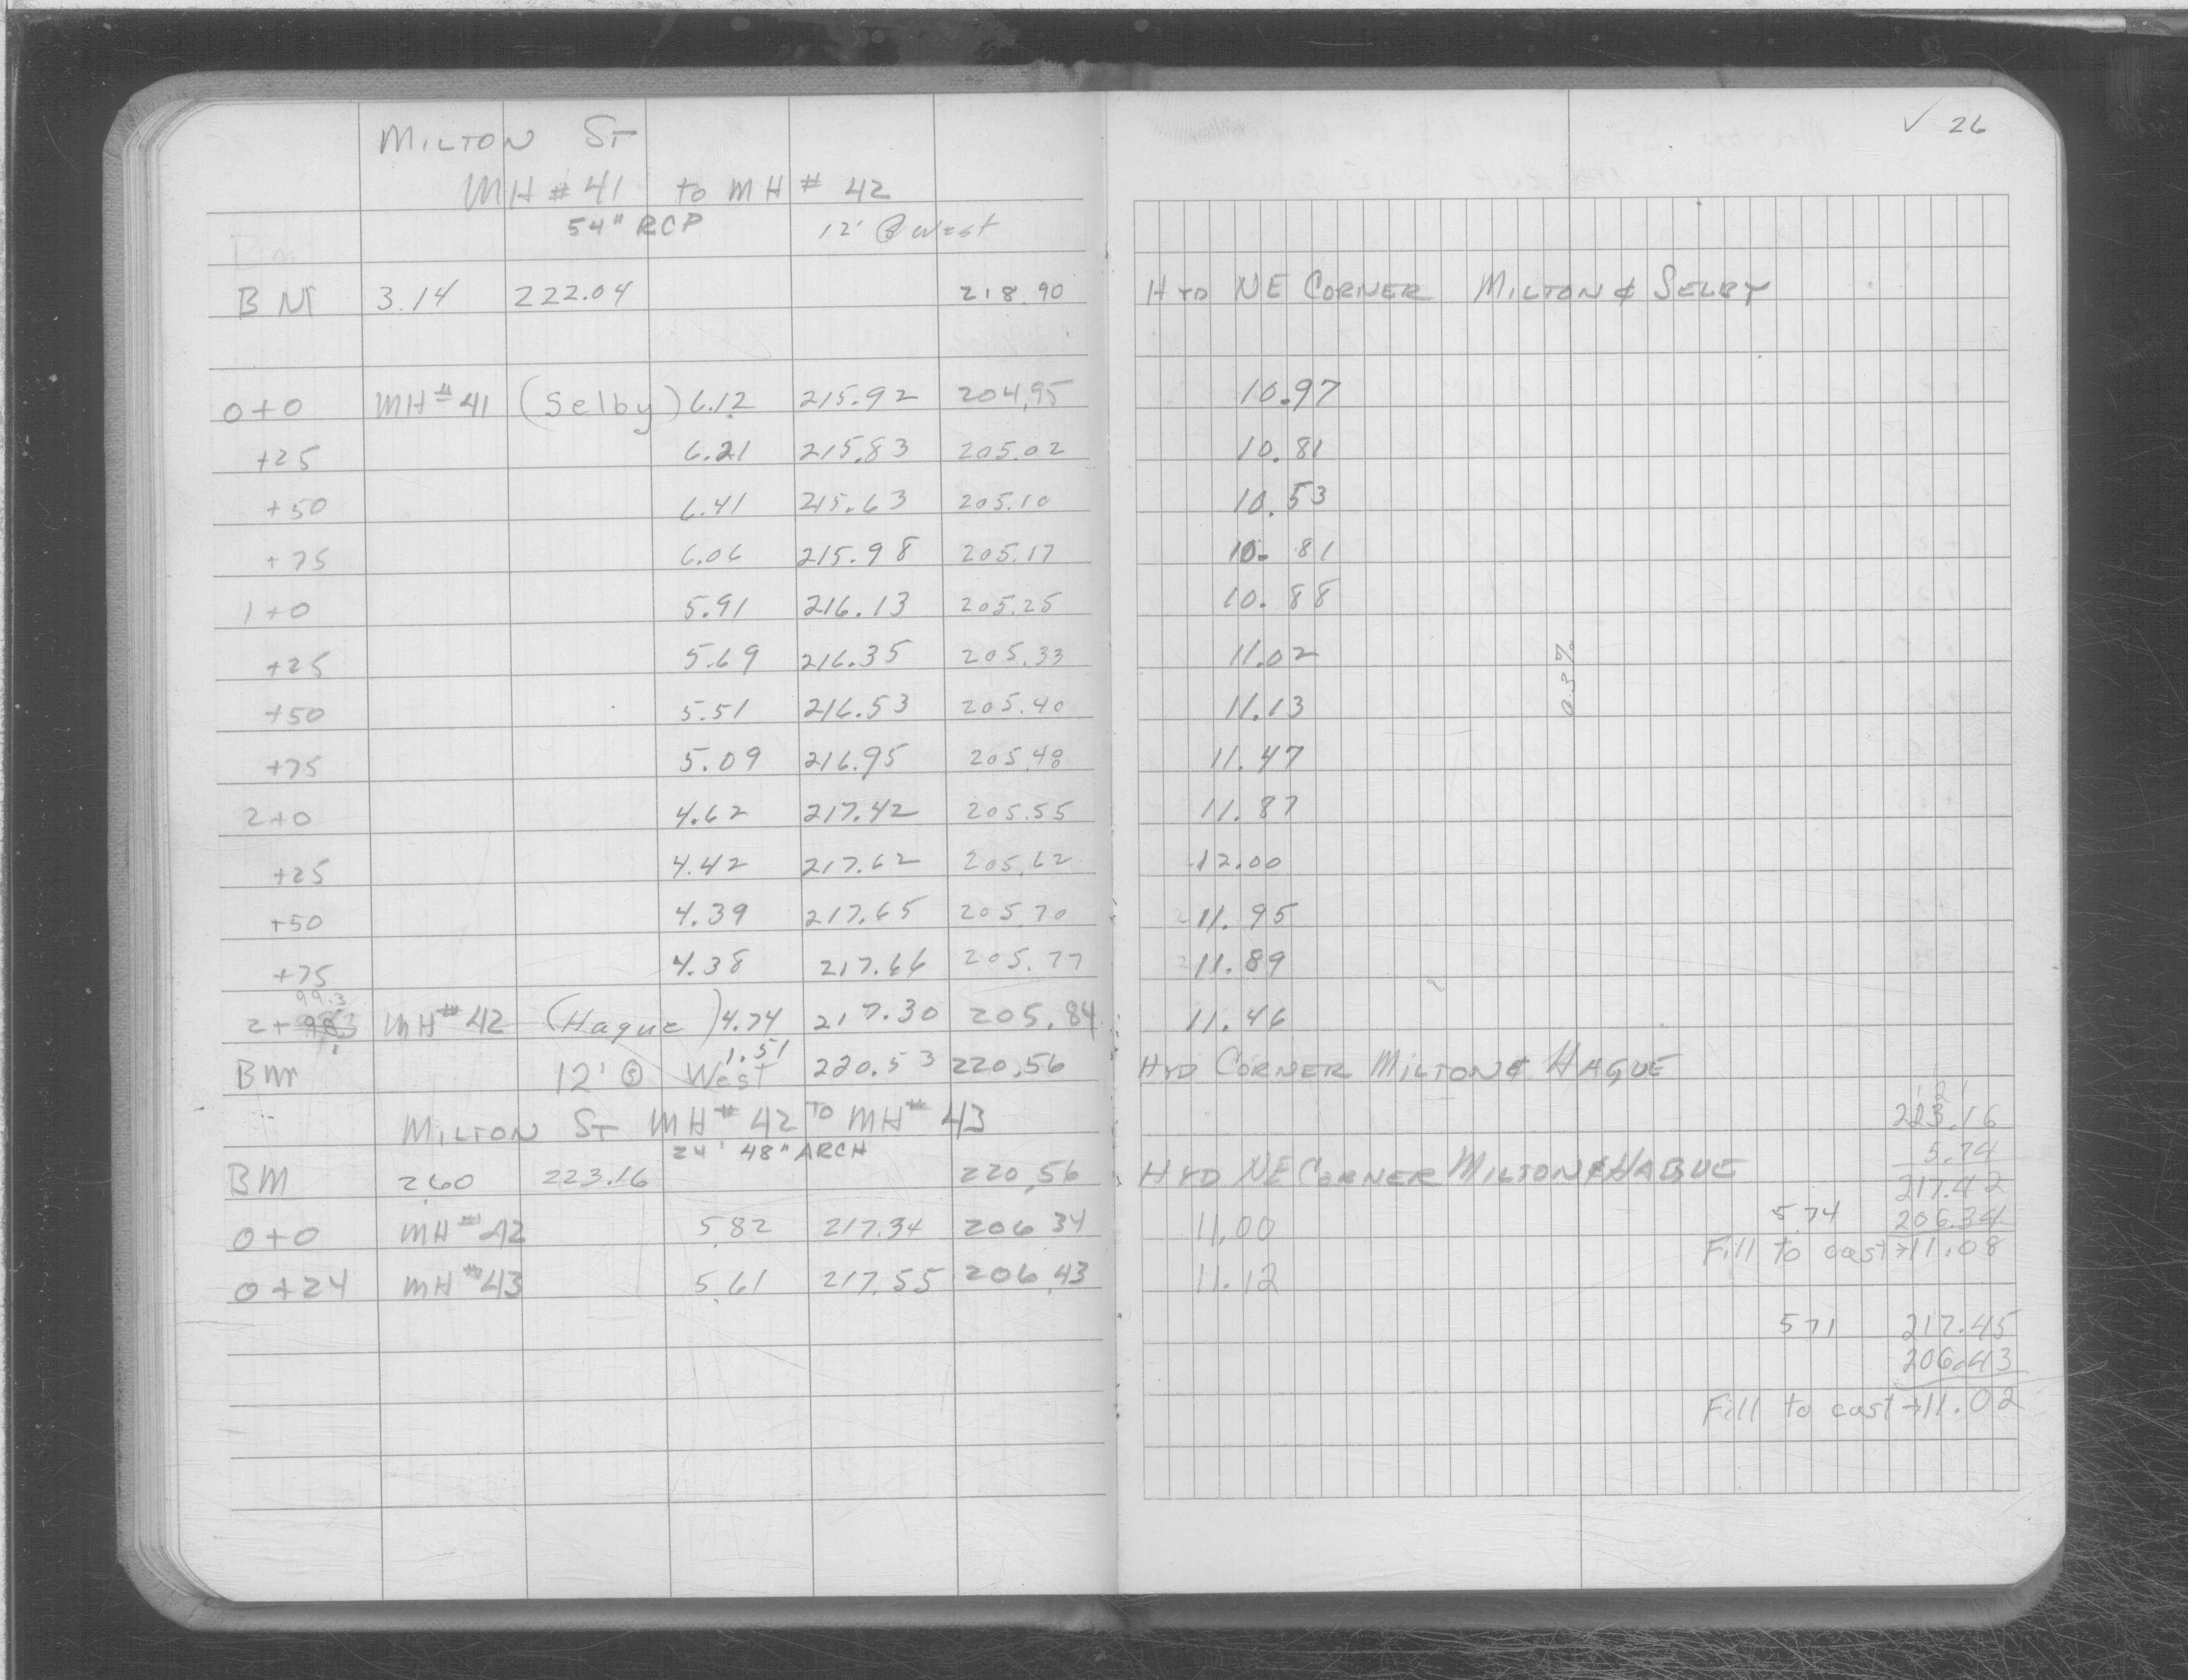 MILTON ST
MH # 41 to MH # 42
54" RCP 12' @ West
BM 3.14 222.04 218.90
0+0 MH # 41 (Selby) 6.12 215.92 204.95
+25 6.21 215.83 205.02
+50 6.41 215.63 205.10
+75 6.06 215.98 205.17
1+0 5.91 216.13 205.25
+25 5.69 216.35 205.33
+50 5.51 216.53 205.40
+75 5.09 216.95 205.48
2+0 4.62 217.42 205.55
+25 4.42 217.62 205.62
+50 4.39 217.65 205.70
+75 4.38 217.66 205.77
99.3
2+ MH # 42 (Hague) 4.74 217.30 205.84
BM 12' @ West 1.51 220.53 220.56
MILTON ST MH # 42 TO MH # 43
24' 48" ARCH
BM 2.60 223.16 220.56
0+0 MH # 42 5.82 217.34 206.34
0+24 MH # 43 5.61 217.55 206.43
✓ 26
HYD NE CORNER MILTON & SELBY
10.97
10.81
10.53
10.81
10.88
11.02
0.3%
11.13
11.47
11.87
12.00
11.95
11.89
11.46
HYD CORNER MILTON & HAGUE
223.16
5.74
HYD NE CORNER MILTON & HAGUE
217.42
11.00 5.74 206.34
Fill to cast → 11.08
11.12
5.71 217.45
206.43
Fill to cast → 11.02